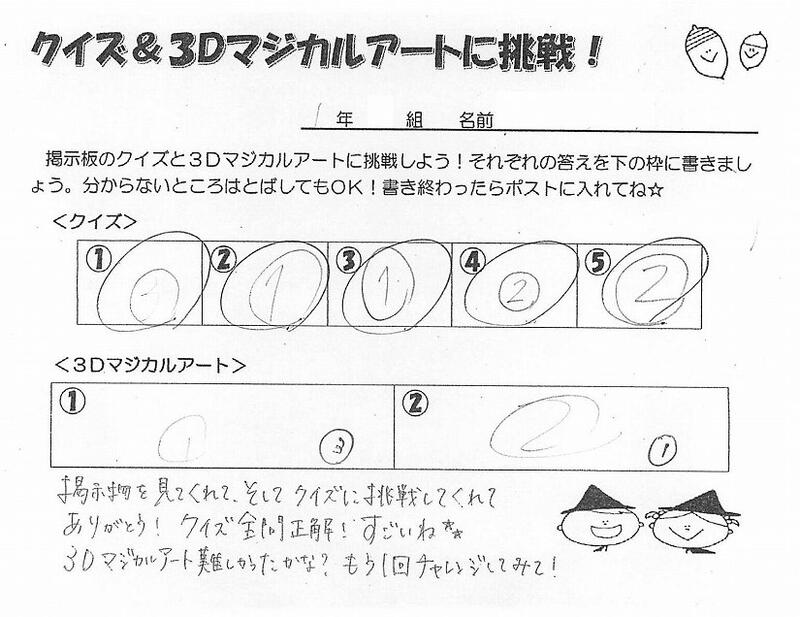 クイズ&3Dマジカルアートに挑戦！
1年 組 名前
掲示板のクイズと3Dマジカルアートに挑戦しよう！それぞれの答えを下の枠に書きまし
ょう。分からないところはとばしてもOK！書き終わったらポストに入れてね☆
<クイズ>
① 3 ② 1 ③ 1 ④ 2 ⑤ 2
<3Dマジカルアート>
① 1 ③ ② 2 ①
掲示物を見てくれて、そして クイズに挑戦してくれて
ありがとう！ クイズ全問正解！すごいね☆☆
3Dマジカルアート難しかったかな？ もう1回チャレンジしてみて！